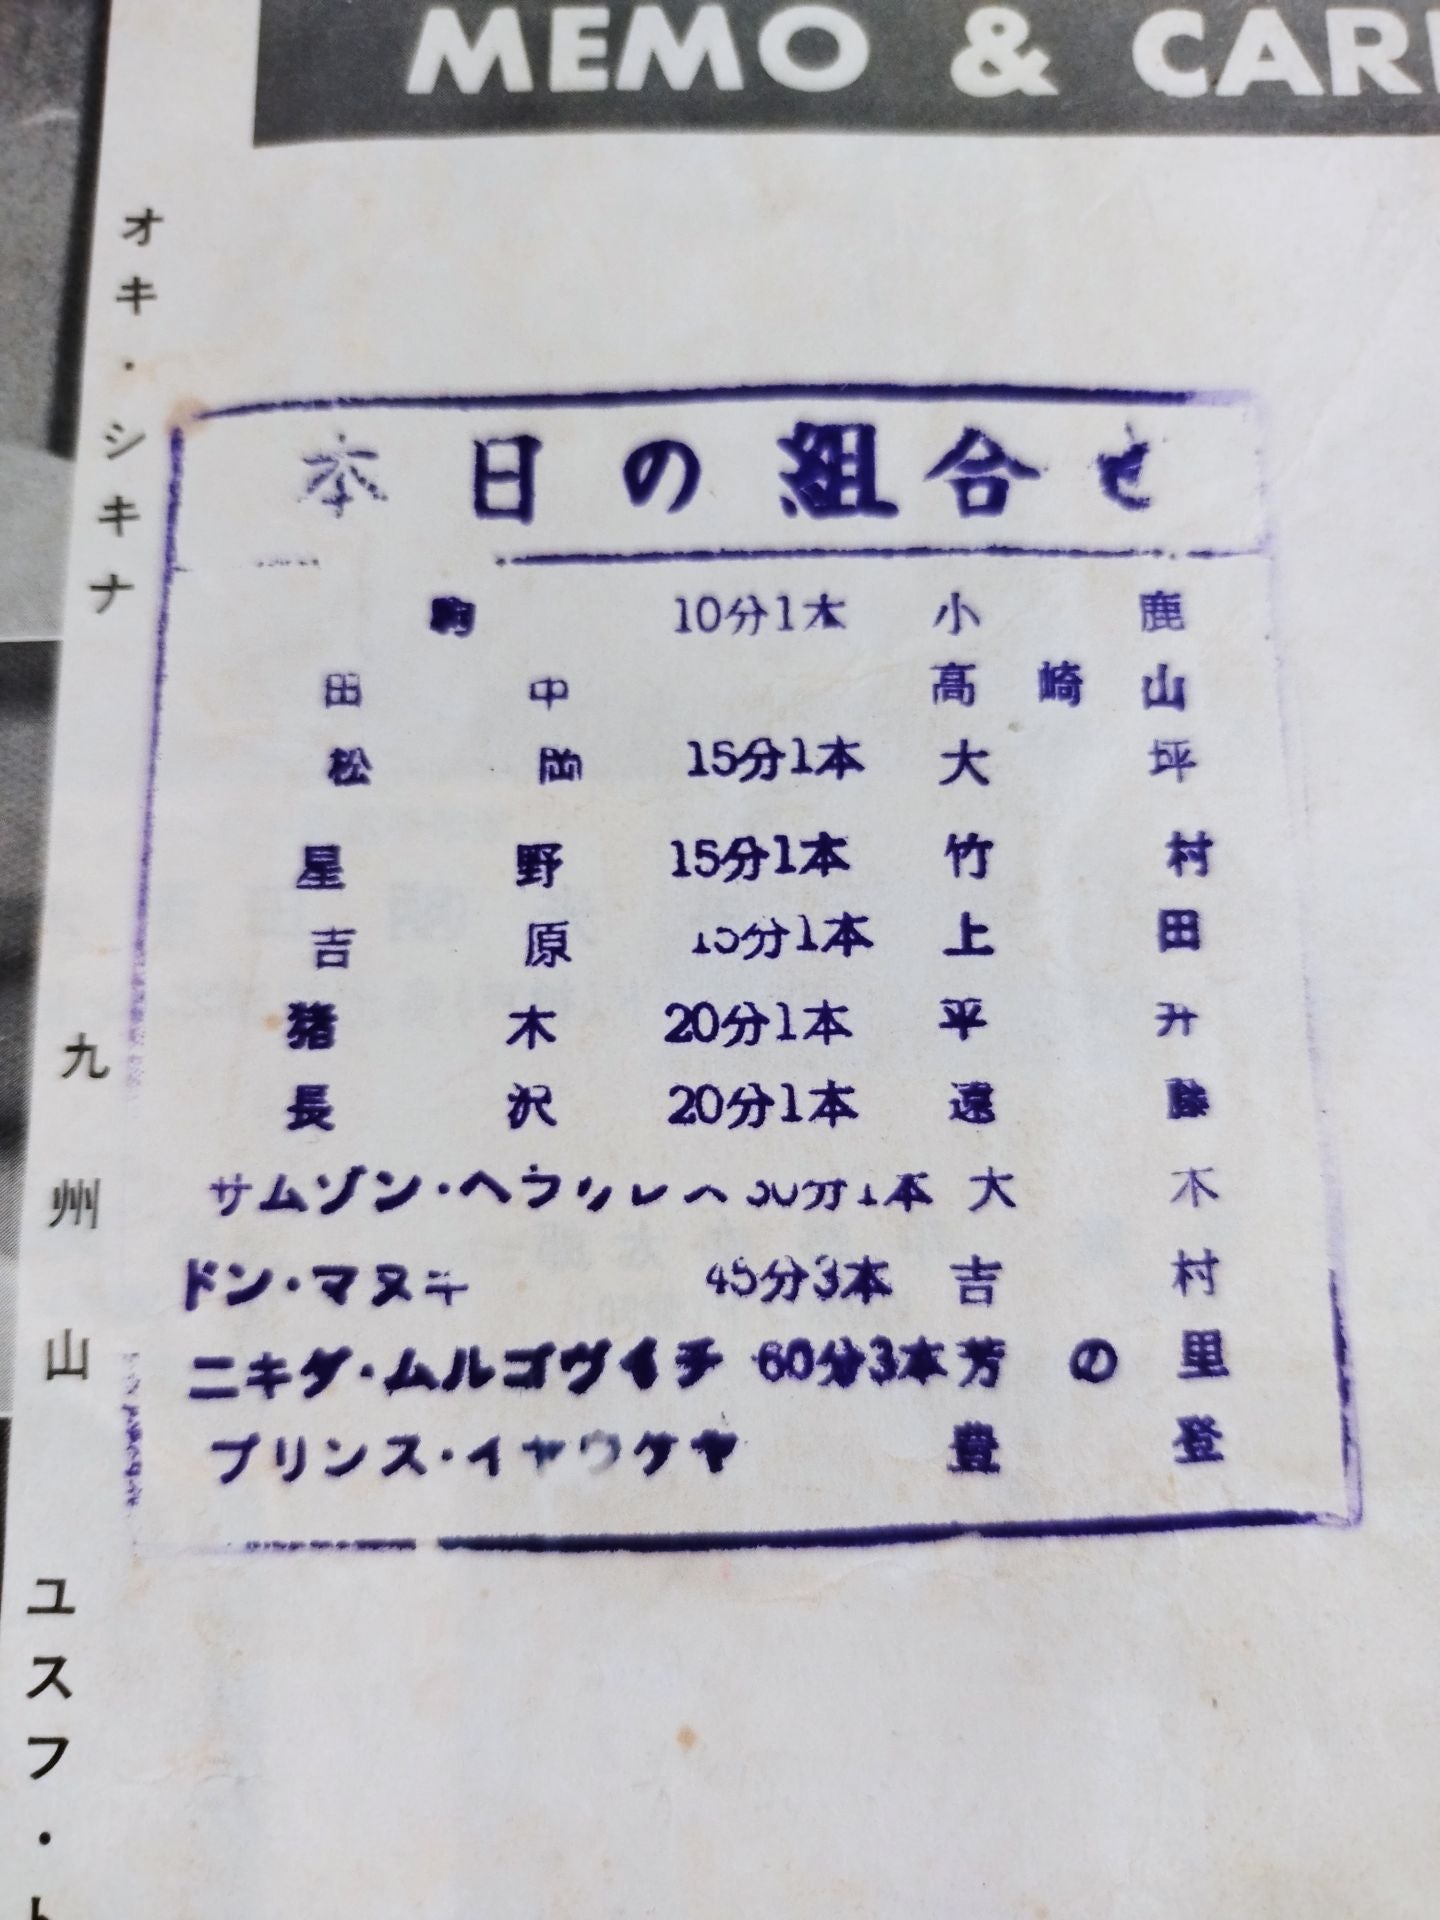 MEMO & CAR
オキ・シキナ
九州山
ユスフ・ト
本日の組合せ
駒 10分1本 小鹿
田中 高崎山
松岡 15分1本 大坪
星野 15分1本 竹村
吉原 15分1本 上田
猪木 20分1本 平井
長沢 20分1本 遠藤
サムソン・ヘラクレス 30分1本 大木
ドン・マヌキ 45分3本 吉村
ニキタ・ムルコヴィチ 60分3本 芳の里
プリンス・イヤウケヤ 豊登